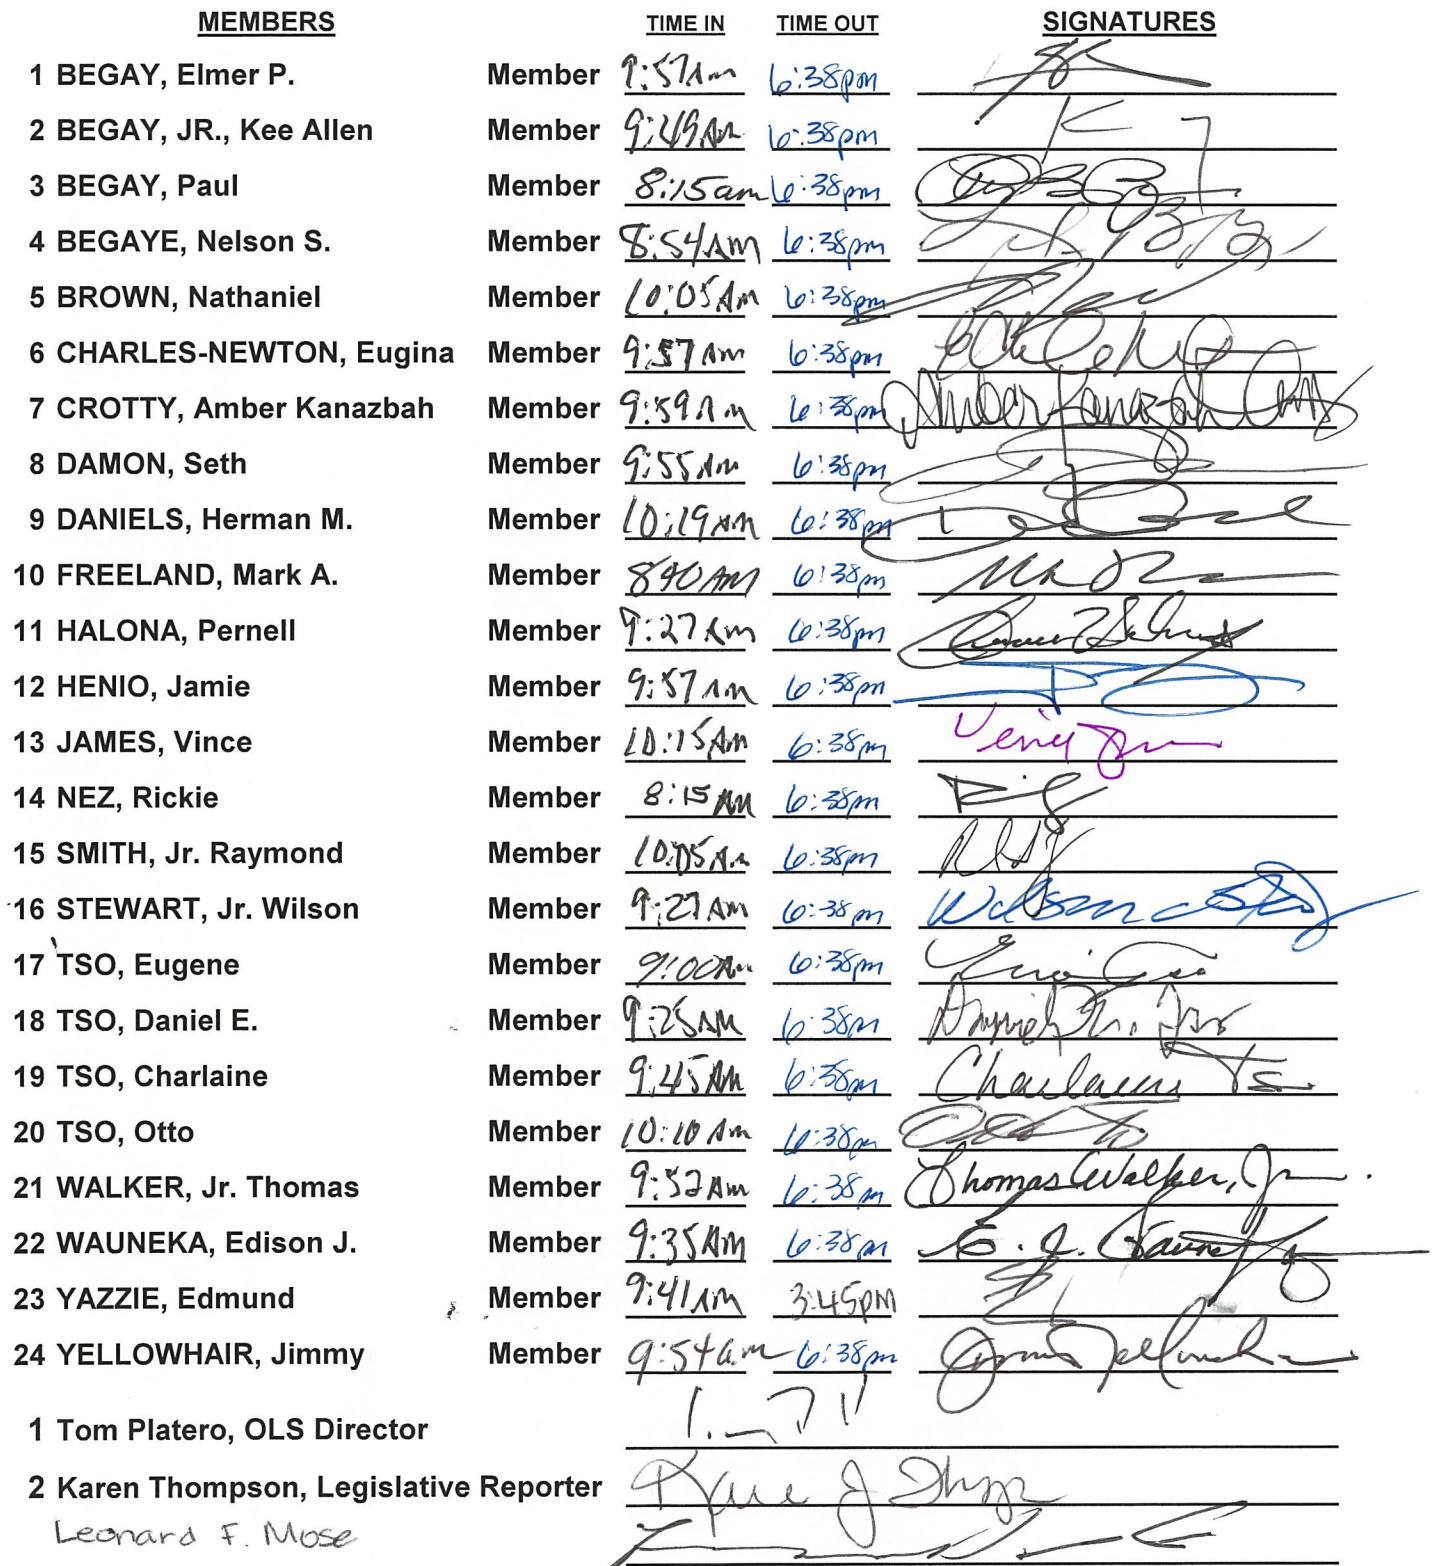 MEMBERS TIME IN TIME OUT SIGNATURES
1 BEGAY, Elmer P. Member 9:57Am 6:38pm
2 BEGAY, JR., Kee Allen Member 9:49Am 6:38pm
3 BEGAY, Paul Member 8:15am 6:38pm
4 BEGAYE, Nelson S. Member 8:54AM 6:38pm
5 BROWN, Nathaniel Member 10:05Am 6:38pm
6 CHARLES-NEWTON, Eugina Member 9:57Am 6:38pm
7 CROTTY, Amber Kanazbah Member 9:59Am 6:38pm Amber Kanazbah Crotty
8 DAMON, Seth Member 9:55Am 6:38pm
9 DANIELS, Herman M. Member 10:19Am 6:38pm
10 FREELAND, Mark A. Member 840AM 6:38pm
11 HALONA, Pernell Member 9:27Am 6:38pm
12 HENIO, Jamie Member 9:57Am 6:38pm
13 JAMES, Vince Member 10:15Am 6:38pm
14 NEZ, Rickie Member 8:15AM 6:38pm
15 SMITH, Jr. Raymond Member 10:05Am 6:38pm
16 STEWART, Jr. Wilson Member 9:27Am 6:38pm
17 TSO, Eugene Member 9:00Am 6:38pm
18 TSO, Daniel E. Member 9:25AM 6:38pm Daniel E. Tso
19 TSO, Charlaine Member 9:45AM 6:38pm Charlaine Tso
20 TSO, Otto Member 10:10Am 6:38pm
21 WALKER, Jr. Thomas Member 9:52Am 6:38pm Thomas Walker, Jr.
22 WAUNEKA, Edison J. Member 9:35AM 6:38pm
23 YAZZIE, Edmund Member 9:41Am 3:45PM
24 YELLOWHAIR, Jimmy Member 9:54a.m 6:38pm
1 Tom Platero, OLS Director
2 Karen Thompson, Legislative Reporter
Leonard F. Mose